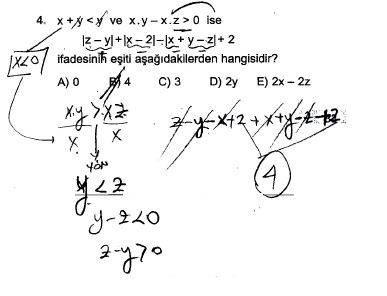 4. x + y < y ve x.y – x.z > 0 ise
|z – y|+|x – 2|–|x + y – z| + 2
ifadesinin eşiti aşağıdakilerden hangisidir?
A) 0 B) 4 C) 3 D) 2y E) 2x – 2z
x<0
x.y > xz
x x
yön
y < z
y-z<0
z-y>0
z-y-x+2+x+y-z+2
4